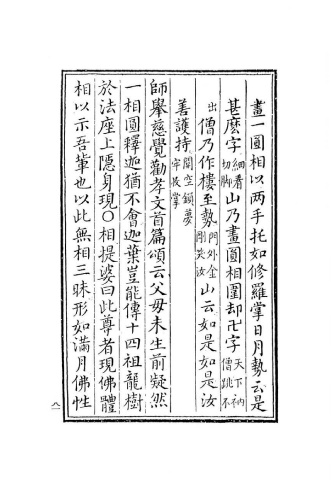 畫一圓相以兩手托如修羅掌日月勢云是
甚麽字細看切脚山乃畫圓相圍却卍字天下衲僧跳不
出僧乃作樓至勢門外金剛笑汝山云如是如是汝
善護持閑空鎖夢牢收掌
師舉慈覺勸孝文首篇頌云父母未生前凝然
一相圓釋迦猶不會迦葉豈能傳十四祖龍樹
於法座上隱身現〇相提婆曰此尊者現佛體
相以示吾輩也以此無相三昧形如滿月佛性